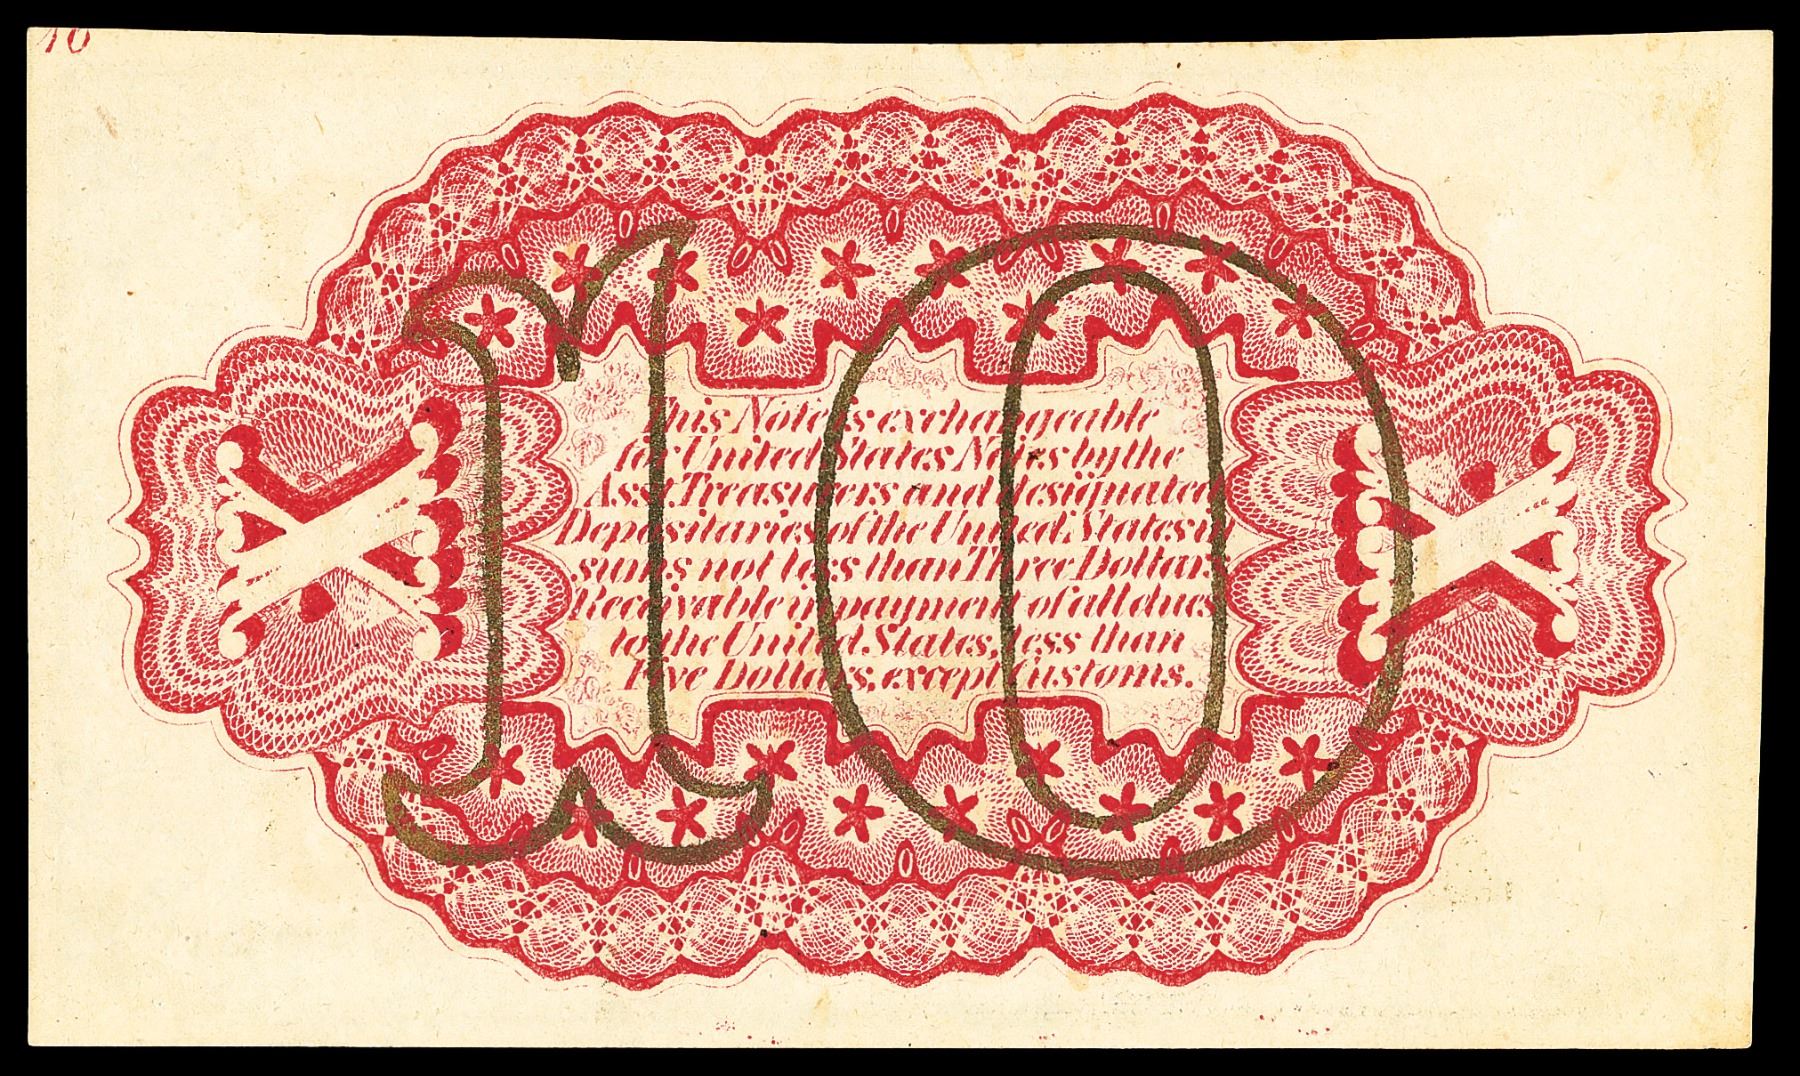 10
X X
10
This Note is exchangeable
for United States Notes by the
Asst. Treasurers and designated
Depositaries of the United States in
sums not less than Three Dollars
Receivable in payment of all dues
to the United States, less than
Five Dollars, except Customs.